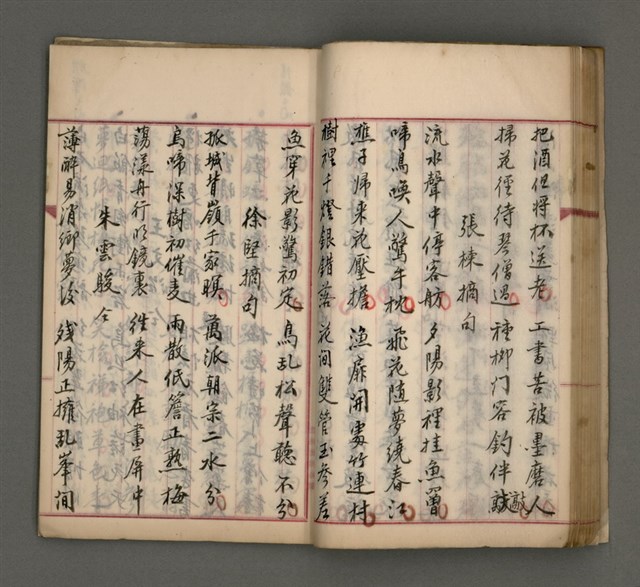 把酒但將杯送老 工書苦被墨磨人
掃花徑待琴僧過 種柳门容釣伴敲
張棟摘句
流水聲中停客舫 夕陽影裡挂魚罾
啼鳥喚人驚午枕 飛花隨夢繞春江
樵子歸来花壓擔 漁扉開處竹連村
樹裡千燈銀錯落 花间雙管玉參差
魚穿花影驚初定 鳥乱松聲聽不分
徐堅摘句
孤城背嶺千家暝 萬派朝宗二水分
烏啼深樹初催麦 雨散低簷正熟梅
蕩漾舟行明鏡裏 往来人在畫屏中
朱雲駿 仝
薄醉易消鄉夢後 殘陽正擁乱峯间